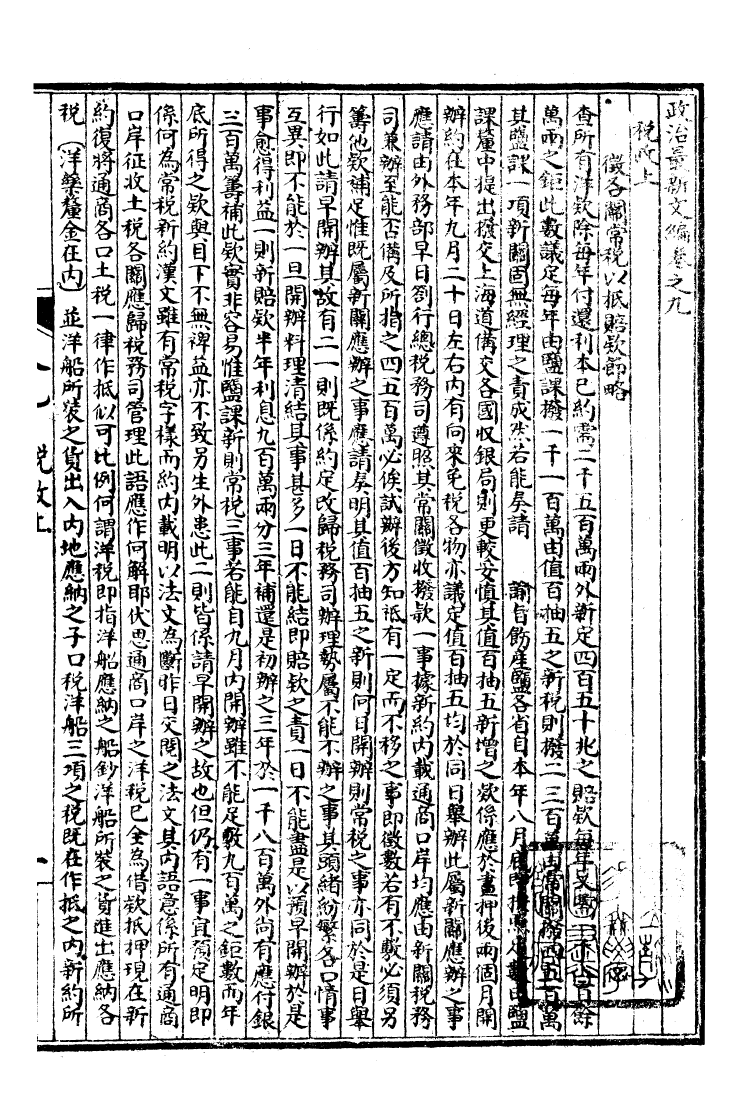 政治最新文編卷之九
稅政上
徵各關常稅以抵賠款節略
查所有洋欵除每年付還利本已約需二千五百萬兩外新定四百五十兆之賠欵每年又需
萬兩之鉅此數議定每年由鹽課撥一千一百萬由值百抽五之新稅則撥二三百萬由常關撥四五百萬
其鹽課一項新關固無經理之責成然若能奏請 諭旨飭產鹽各省自本年八月底
課釐中提出撥交上海道備交各國收銀局則更較妥慎其值百抽五新增之欵係應於畫押後兩個月開
辦約在本年九月二十日左右內有向來免稅各物亦議定值百抽五均於同日舉辦此屬新關應辦之事
應請由外務部早日劄行總稅務司遵照其常關徵收撥欵一事據新約內載通商口岸均應由新關稅務
司兼辦至能否備及所指之四五百萬必俟試辦後方知祇有一定而不移之事即徵數若有不敷必須另
籌他欵補足惟既屬新關應辦之事應請奏明其值百抽五之新則何日開辦則常稅之事亦同於是日舉
行如此請早開辦其故有二一則既係約定改歸稅務司辦理勢屬不能不辦之事其頭緒紛繁各口情事
互異即不能於一旦開辦料理清結其事甚多一日不能結即賠欵之責一日不能盡是以預早開辦於是
事愈得利益一則新賠欵半年利息九百萬兩分三年補還是初辦之三年於一千八百萬外尚有應付銀
三百萬籌補此欵實非容易惟鹽課新則常稅三事若能自九月內開辦雖不能足敷九百萬之鉅數而年
底所得之欵與目下不無裨益亦不致另生外患此二則皆係請早開辦之故也但仍有一事宜預定明即
係何為常稅新約漢文雖有常稅字樣而約內載明以法文為斷昨日交閱之法文其內語意係所有通商
口岸征收土稅各關應歸稅務司管理此語應作何解耶伏思通商口岸之洋稅已全為借欵抵押現在新
約復將通商各口土稅一律作抵似可比例何謂洋稅即指洋船應納之船鈔洋船所裝之貨進出應納各
稅（洋藥釐金在內）並洋船所裝之貨出入內地應納之子口稅洋船三項之稅既在作抵之內新約所
稅政上